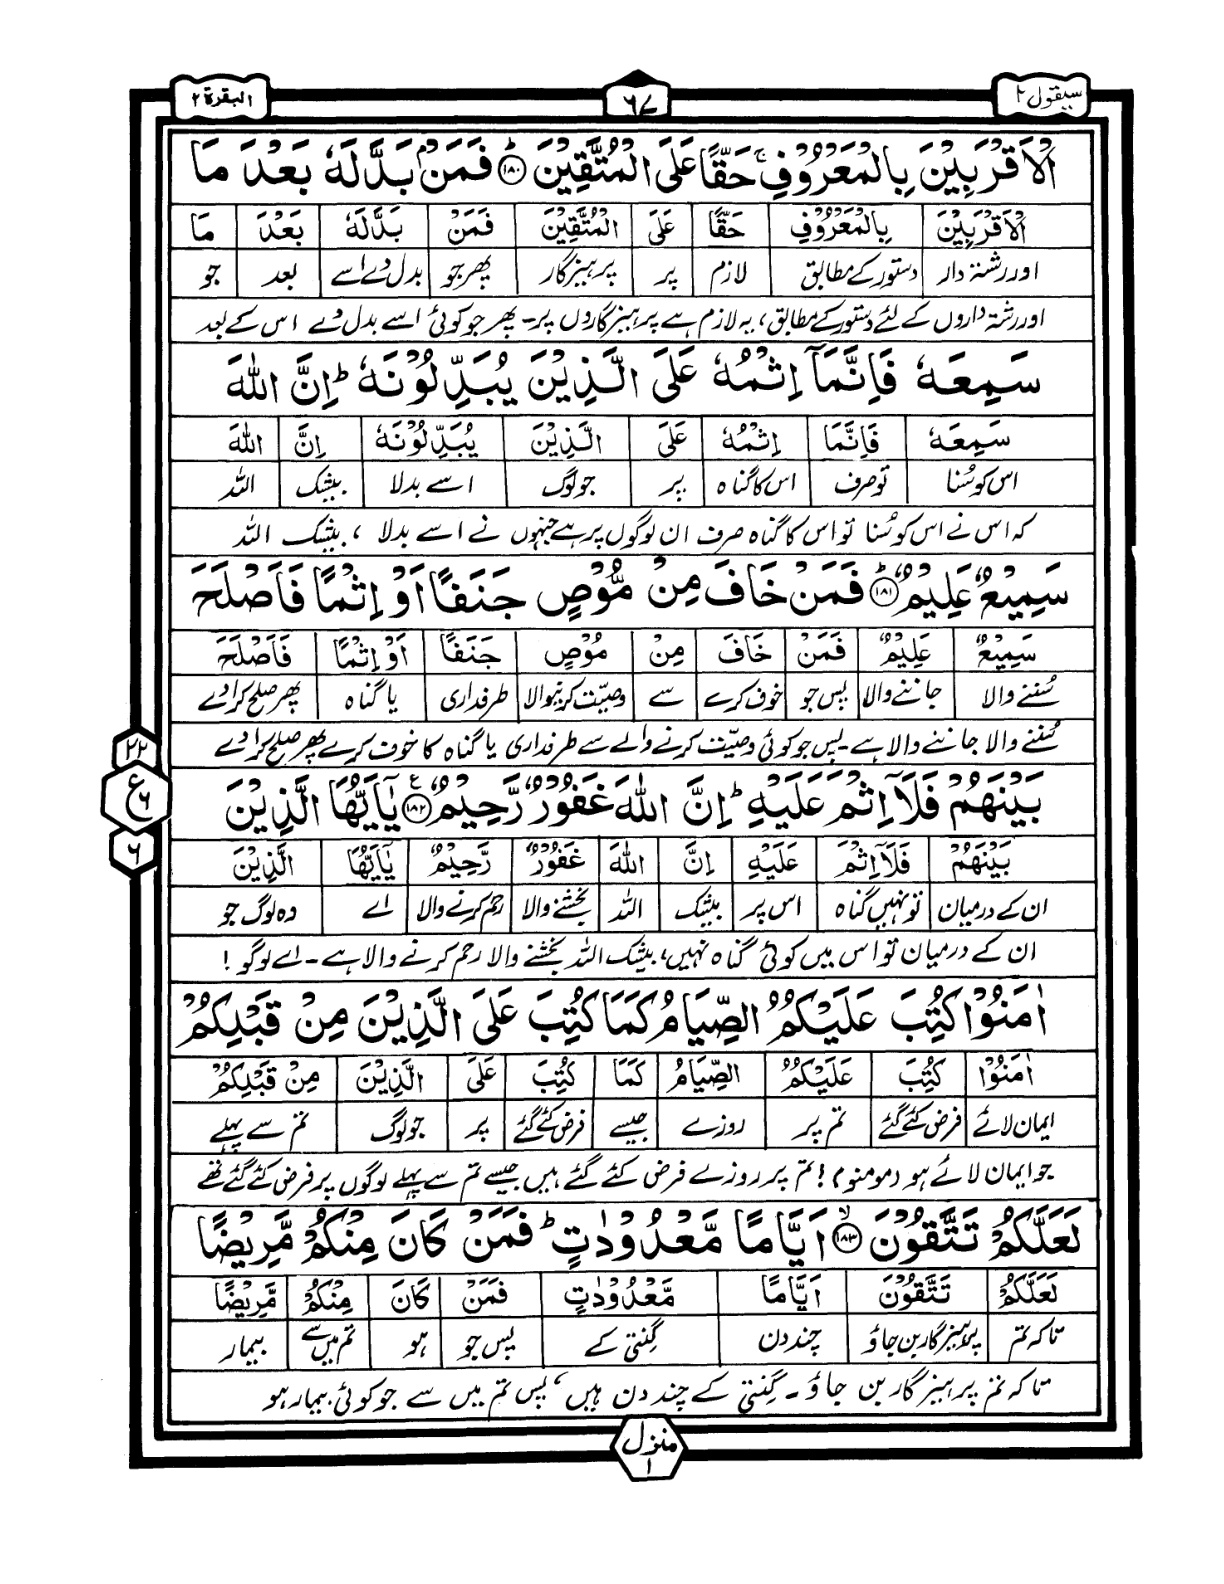 سیقول ۲
۶۷
البقرة ۲
الْاَقْرَبِیْنَ بِالْمَعْرُوْفِ ۚ حَقًّا عَلَى الْمُتَّقِیْنَ ؕ۝۱۸۰ فَمَنْۢ بَدَّلَهٗ بَعْدَ مَا
الْاَقْرَبِیْنَ بِالْمَعْرُوْفِ حَقًّا عَلَى الْمُتَّقِیْنَ فَمَنْ بَدَّلَهٗ بَعْدَ مَا
اور رشتہ دار دستور کے مطابق لازم پر پرہیزگار پھر جو بدل دے اسے بعد جو
اور رشتہ داروں کے لئے دستور کے مطابق، یہ لازم ہے پرہیزگاروں پر۔ پھر جو کوئی اسے بدل دے اس کے بعد
سَمِعَهٗ فَاِنَّمَاۤ اِثْمُهٗ عَلَى الَّذِیْنَ یُبَدِّلُوْنَهٗ ؕ اِنَّ اللّٰهَ
سَمِعَهٗ فَاِنَّمَا اِثْمُهٗ عَلَى الَّذِیْنَ یُبَدِّلُوْنَهٗ اِنَّ اللّٰهَ
اس کو سُنا تو صرف اس کا گناہ پر جو لوگ اسے بدلا بیشک اللہ
کہ اس نے اس کو سُنا تو اس کا گناہ صرف ان لوگوں پر ہے جنہوں نے اسے بدلا ، بیشک اللہ
سَمِیْعٌ عَلِیْمٌ ؕ۝۱۸۱ فَمَنْ خَافَ مِنْ مُّوْصٍ جَنَفًا اَوْ اِثْمًا فَاَصْلَحَ
سَمِیْعٌ عَلِیْمٌ فَمَنْ خَافَ مِنْ مُوْصٍ جَنَفًا اَوْ اِثْمًا فَاَصْلَحَ
سُننے والا جاننے والا پس جو خوف کرے سے وصیّت کرنیوالا طرفداری یا گناہ پھر صلح کرا دے
سُننے والا جاننے والا ہے۔ پس جو کوئی وصیّت کرنے والے سے طرفداری یا گناہ کا خوف کرے پھر صلح کرا دے
۲۲
ع
۶
۶
بَیْنَهُمْ فَلَاۤ اِثْمَ عَلَیْهِ ؕ اِنَّ اللّٰهَ غَفُوْرٌ رَّحِیْمٌ ۠۝۱۸۲ یٰۤاَیُّهَا الَّذِیْنَ
بَیْنَهُمْ فَلَاۤ اِثْمَ عَلَیْهِ اِنَّ اللّٰهَ غَفُوْرٌ رَّحِیْمٌ یٰۤاَیُّهَا الَّذِیْنَ
ان کے درمیان تو نہیں گناہ اس پر بیشک اللہ بخشنے والا رحم کرنے والا اے وہ لوگ جو
ان کے درمیان تو اس میں کوئی گناہ نہیں، بیشک اللہ بخشنے والا رحم کرنے والا ہے۔ اے لوگو !
اٰمَنُوْا كُتِبَ عَلَیْكُمُ الصِّیَامُ كَمَا كُتِبَ عَلَى الَّذِیْنَ مِنْ قَبْلِكُمْ
اٰمَنُوْا كُتِبَ عَلَیْكُمُ الصِّیَامُ كَمَا كُتِبَ عَلَى الَّذِیْنَ مِنْ قَبْلِكُمْ
ایمان لائے فرض کئے گئے تم پر روزے جیسے فرض کئے گئے پر جو لوگ تم سے پہلے
جو ایمان لائے ہو (مومنو) ! تم پر روزے فرض کئے گئے ہیں جیسے تم سے پہلے لوگوں پر فرض کئے گئے تھے
لَعَلَّكُمْ تَتَّقُوْنَ ۙ۝۱۸۳ اَیَّامًا مَّعْدُوْدٰتٍ ؕ فَمَنْ كَانَ مِنْكُمْ مَّرِیْضًا
لَعَلَّكُمْ تَتَّقُوْنَ اَیَّامًا مَّعْدُوْدٰتٍ فَمَنْ كَانَ مِنْكُمْ مَّرِیْضًا
تاکہ تم پرہیزگار بن جاؤ چند دن گنتی کے پس جو ہو تم میں سے بیمار
تاکہ تم پرہیزگار بن جاؤ ۔ گنتی کے چند دن ہیں، پس تم میں سے جو کوئی بیمار ہو
منزل ۱